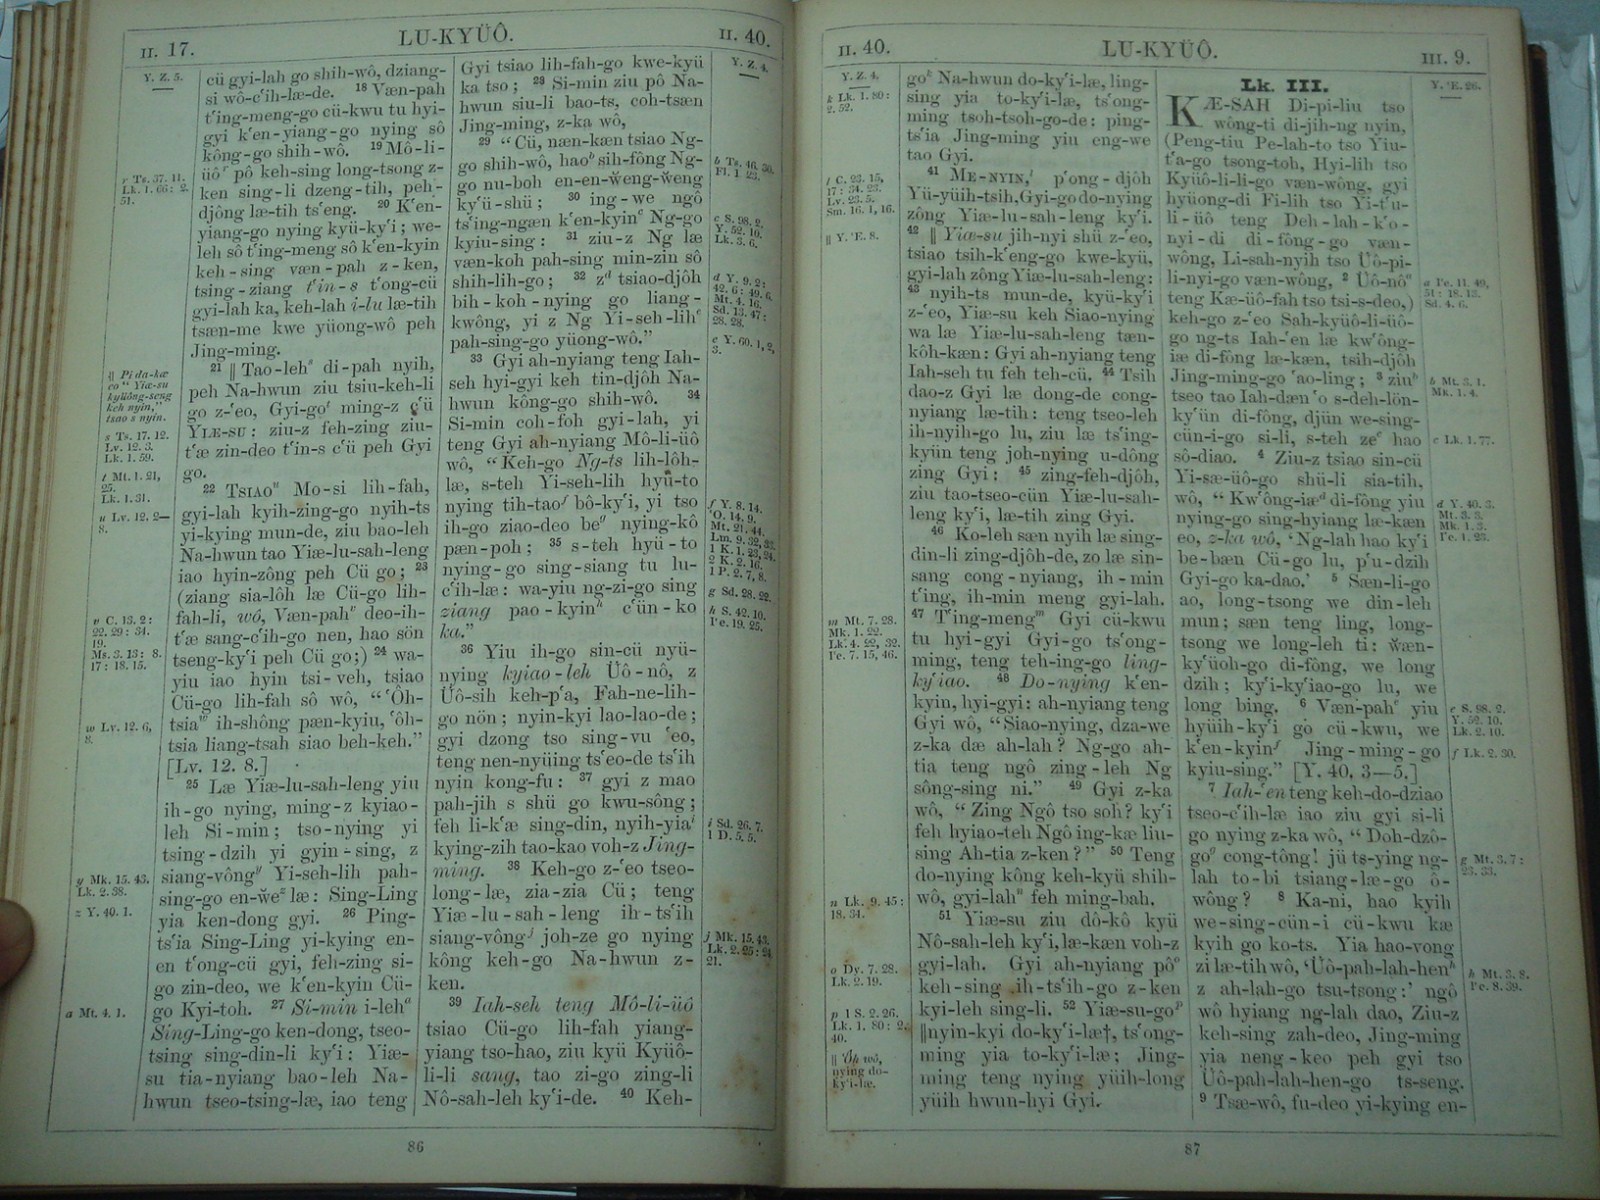 II. 17.
LU-KYÜÔ.
II. 40.
Y. Z. 5.
r Ts. 37. 11.
Lk. 1. 66: 2.
51.
¶ Pi da-kæ
eo “ Yiæ-su
kyüông-seng
keh nyin,”
tsao s nyin.
s Ts. 17. 12.
Lv. 12. 3.
Lk. 1. 59.
t Mt. 1. 21,
25.
Lk. 1. 31.
u Lv. 12. 2—
8.
v C. 13. 2:
22. 29: 34.
19.
Ms. 3. 13: 8.
17: 18. 15.
w Lv. 12. 6,
8.
y Mk. 15. 43.
Lk. 2. 38.
z Y. 40. 1.
a Mt. 4. 1.
cü gyi-lah go shih-wô, dziang-
si wô-c‘ih-læ-de. 18 Væn-pah
t‘ing-meng-go cü-kwu tu hyi-
gyi k‘en-yiang-go nying sô
kông-go shih-wô. 19 Mô-li-
üôr pô keh-sing long-tsong z-
ken sing-li dzeng-tih, peh-
djông læ-tih ts‘eng. 20 K‘en-
yiang-go nying kyü-ky‘i; we-
leh sô t‘ing-meng sô k‘en-kyin
keh-sing væn-pah z-ken,
tsing-ziang t‘in-s t‘ong-cü
gyi-lah ka, keh-lah i-lu læ-tih
tsæn-me kwe yüong-wô peh
Jing-ming.
21 ‖ Tao-lehs di-pah nyih,
peh Na-hwun ziu tsiu-keh-li
go z-‘eo, Gyi-got ming-z c‘ü
YLE-SU: ziu-z feh-zing ziu-
t‘æ zin-deo t‘in-s c‘ü peh Gyi
go.
22 TSIAOu Mo-si lih-fah,
gyi-lah kyih-zing-go nyih-ts
yi-kying mun-de, ziu bao-leh
Na-hwun tao Yiæ-lu-sah-leng
iao hyin-zông peh Cü go; 23
(ziang sia-lôh læ Cü-go lih-
fah-li, wô, Væn-pahv deo-ih-
t‘æ sang-c‘ih-go nen, hao sön
tseng-ky‘i peh Cü go;) 24 wa-
yiu iao hyin tsi-veh, tsiao
Cü-go lih-fah sô wô, “‘Ôh-
tsiaw ih-shông pæn-kyiu, ‘ôh-
tsia liang-tsah siao beh-keh.”
[Lv. 12. 8.]
25 Læ Yiæ-lu-sah-leng yiu
ih-go nying, ming-z kyiao-
leh Si-min; tso-nying yi
tsing-dzih yi gyin-sing, z
siang-vôngy Yi-seh-lih pah-
sing-go en-w̌ez læ: Sing-Ling
yia ken-dong gyi. 26 Ping-
ts‘ia Sing-Ling yi-kying en-
en t‘ong-cü gyi, feh-zing si-
go zin-deo, we k‘en-kyin Cü-
go Kyi-toh. 27 Si-min i-leha
Sing-Ling-go ken-dong, tseo-
tsing sing-din-li ky‘i: Yiæ-
su tia-nyiang bao-leh Na-
hwun tseo-tsing-læ, iao teng
Gyi tsiao lih-fah-go kwe-kyü
ka tso; 28 Si-min ziu pô Na-
hwun siu-li bao-ts, coh-tsæn
Jing-ming, z-ka wô,
29 “Cü, næn-kæn tsiao Ng-
go shih-wô, haob sih-fông Ng-
go nu-boh en-en-w̌eng-w̌eng
ky‘ü-shü; 30 ing-we ngô
ts‘ing-ngæn k‘en-kyinc Ng-go
kyiu-sing: 31 ziu-z Ng læ
væn-koh pah-sing min-zin sô
shih-lih-go; 32 zd tsiao-djôh
bih-koh-nying go liang-
kwông, yi z Ng Yi-seh-lihe
pah-sing-go yüong-wô.”
33 Gyi ah-nyiang teng Iah-
seh hyi-gyi keh tin-djôh Na-
hwun kông-go shih-wô. 34
Si-min coh-foh gyi-lah, yi
teng Gyi ah-nyiang Mô-li-üô
wô, “Keh-go Ng-ts lih-lôh-
læ, s-teh Yi-seh-lih hyü-to
nying tih-taof bô-ky‘i, yi tso
ih-go ziao-deo beg nying-kô
pæn-poh; 35 s-teh hyü-to
nying-go sing-siang tu lu-
c‘ih-læ: wa-yiu ng-zi-go sing
ziang pao-kyinh c‘ün-ko
ka.”
36 Yiu ih-go sin-cü nyü-
nying kyiao-leh Üô-nô, z
Üô-sih keh-p‘a, Fah-ne-lih-
go nön; nyin-kyi lao-lao-de;
gyi dzong tso sing-vu ‘eo,
teng nen-nyüing ts‘eo-de ts‘ih
nyin kong-fu: 37 gyi z mao
pah-jih s shü go kwu-sông;
feh li-k‘æ sing-din, nyih-yiai
kying-zih tao-kao voh-z Jing-
ming. 38 Keh-go z-‘eo tseo-
long-læ, zia-zia Cü; teng
Yiæ-lu-sah-leng ih-ts‘ih
siang-vôngj joh-ze go nying
kông keh-go Na-hwun z-
ken.
39 Iah-seh teng Mô-li-üô
tsiao Cü-go lih-fah yiang-
yiang tso-hao, ziu kyü Kyüô-
li-li sang, tao zi-go zing-li
Nô-sah-leh ky‘i-de. 40 Keh-
Y. Z. 4.
b Ts. 46. 30.
Fl. 1. 23.
c S. 98. 2.
Y. 52. 10.
Lk. 3. 6.
d Y. 9. 2:
42. 6: 49. 6.
Mt. 4. 16.
Sd. 13. 47:
28. 28.
e Y. 60. 1, 2,
3.
f Y. 8. 14.
‘O. 14. 9.
Mt. 21. 44.
Lm. 9. 32, 33.
1 K. 1. 23, 24.
2 K. 2. 16.
1 P. 2. 7, 8.
g Sd. 28. 22.
h S. 42. 10.
I‘e. 19. 25.
i Sd. 26. 7.
1 D. 5. 5.
j Mk. 15. 43.
Lk. 2. 25: 24.
21.
86
II. 40.
LU-KYÜÔ.
III. 9.
Y. Z. 4.
k Lk. 1. 80:
2. 52.
l C. 23. 15,
17: 34. 23.
Lv. 23. 5.
Sm. 16. 1, 16.
‖ Y. ‘E. 8.
m Mt. 7. 28.
Mk. 1. 22.
Lk. 4. 22, 32.
I‘e. 7. 15, 46.
n Lk. 9. 45:
18. 34.
o Dy. 7. 28.
Lk. 2. 19.
p 1 S. 2. 26.
Lk. 1. 80: 2.
40.
‖ ‘Ôh wô,
nying do-
ky‘i-læ.
gok Na-hwun do-ky‘i-læ, ling-
sing yia to-ky‘i-læ, ts‘ong-
ming tsoh-tsoh-go-de: ping-
ts‘ia Jing-ming yiu eng-we
tao Gyi.
41 ME-NYIN,l p‘ong-djôh
Yü-yüih-tsih, Gyi-go do-nying
zông Yiæ-lu-sah-leng ky‘i.
42 ‖ Yiæ-su jih-nyi shü z-‘eo,
tsiao tsih-k‘eng-go kwe-kyü,
gyi-lah zông Yiæ-lu-sah-leng:
43 nyih-ts mun-de, kyü-ky‘i
z-‘eo, Yiæ-su keh Siao-nying
wa læ Yiæ-lu-sah-leng tæn-
kôh-kæn: Gyi ah-nyiang teng
Iah-seh tu feh teh-cü. 44 Tsih
dao-z Gyi læ dong-de cong-
nyiang læ-tih: teng tseo-leh
ih-nyih-go lu, ziu læ ts‘ing-
kyün teng joh-nying u-dông
zing Gyi: 45 zing-feh-djôh,
ziu tao-tseo-cün Yiæ-lu-sah-
leng ky‘i, læ-tih zing Gyi.
46 Ko-leh sæn nyih læ sing-
din-li zing-djôh-de, zo læ sin-
sang cong-nyiang, ih-min
t‘ing, ih-min meng gyi-lah.
47 T‘ing-mengm Gyi cü-kwu
tu hyi-gyi Gyi-go ts‘ong-
ming, teng teh-ing-go ling-
ky‘iao. 48 Do-nying k‘en-
kyin, hyi-gyi: ah-nyiang teng
Gyi wô, “Siao-nying, dza-we
z-ka dæ ah-lah? Ng-go ah-
tia teng ngô zing-leh Ng
sông-sing ni.” 49 Gyi z-ka
wô, “ Zing Ngô tso soh? ky‘i
feh hyiao-teh Ngô ing-kæ liu-
sing Ah-tia z-ken?” 50 Teng
do-nying kông keh-kyü shih-
wô, gyi-lahn feh ming-bah.
51 Yiæ-su ziu dô-kô kyü
Nô-sah-leh ky‘i, læ-kæn voh-z
gyi-lah. Gyi ah-nyiang pôo
keh-sing ih-ts‘ih-go z-ken
kyi-leh sing-li. 52 Yiæ-su-gop
‖nyin-kyi do-ky‘i-læ†, ts‘ong-
ming yia to-ky‘i-læ; Jing-
ming teng nying yüih-long
yüih hwun-hyi Gyi.
Lk. III.
KÆ-SAH Di-pi-liu tso
wông-ti di-jih-ng nyin,
(Peng-tiu Pe-lah-to tso Yiu-
t‘a-go tsong-toh, Hyi-lih tso
Kyüô-li-li-go væn-wông, gyi
hyüong-di Fi-lih tso Yi-t‘u-
li-üô teng Deh-lah-k‘o-
nyi-di di-fông-go væn-
wông, Li-sah-nyih tso Üô-pi-
li-nyi-go væn-wông, 2 Üô-nôa
teng Kæ-üô-fah tso tsi-s-deo,)
keh-go z-‘eo Sah-kyüô-li-üô-
go ng-ts Iah-‘en læ kw‘ông-
iæ di-fông læ-kæn, tsih-djôh
Jing-ming-go ‘ao-ling; 3 ziub
tseo tao Iah-dæn ‘o s-deh-lön-
ky‘ün di-fông, djün we-sing-
cün-i-go si-li, s-teh zec hao
sô-diao. 4 Ziu-z tsiao sin-cü
Yi-sæ-üô-go shü-li sia-tih,
wô, “ Kw‘ông-iæd di-fông yiu
nying-go sing-hyiang læ-kæn
eo, z-ka wô, ‘Ng-lah hao ky‘i
be-bæn Cü-go lu, p‘u-dzih
Gyi-go ka-dao.’ 5 Sæn-li-go
ao, long-tsong we din-leh
mun; sæn teng ling, long-
tsong we long-leh ti: w̌æn-
ky‘üoh-go di-fông, we long
dzih; ky‘i-ky‘iao-go lu, we
long bing. 6 Væn-pahe yiu
hyüih-ky‘i go cü-kwu, we
k‘en-kyinf Jing-ming-go
kyiu-sing.” [Y. 40. 3—5.]
7 Iah-‘en teng keh-do-dziao
tseo-c‘ih-læ iao ziu gyi si-li
go nying z-ka wô, “ Doh-dzô-
gog cong-tông! jü ts-ying ng-
lah to-bi tsiang-læ-go ô-
wông? 8 Ka-ni, hao kyih
we-sing-cün-i cü-kwu kæ
kyih go ko-ts. Yia hao-vong
zi læ-tih wô, ‘Üô-pah-lah-henh
z ah-lah-go tsu-tsong:’ ngô
wô hyiang ng-lah dao, Ziu-z
keh-sing zah-deo, Jing-ming
yia neng-keo peh gyi tso
Üô-pah-lah-hen-go ts-seng.
9 Tsæ-wô, fu-deo yi-kying en-
Y. ‘E. 26.
a I‘e. 11. 49,
51: 18. 13.
Sd. 4. 6.
b Mt. 3. 1.
Mk. 1. 4.
c Lk. 1. 77.
d Y. 40. 3.
Mt. 3. 3.
Mk. 1. 3.
I‘e. 1. 23.
e S. 98. 2.
Y. 52. 10.
Lk. 2. 10.
f Lk. 2. 30.
g Mt. 3. 7:
23. 33.
h Mt. 3. 8.
I‘e. 8. 39.
87